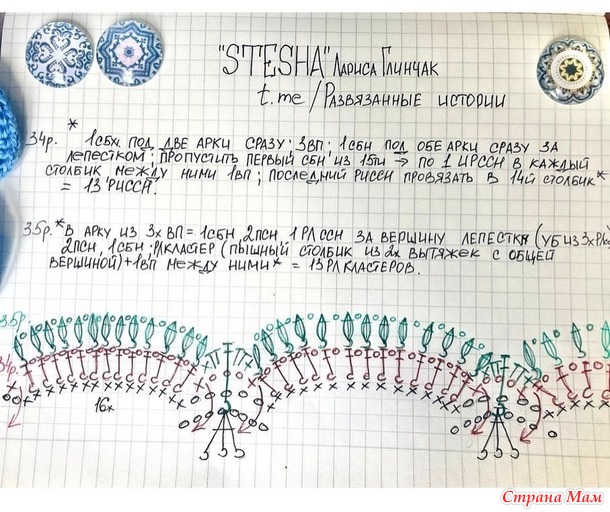 "STESHA" Лариса Глинчак
t.me/Развязанные истории
*
34р. 1сбх под две арки сразу; 3вп; 1сбн под обе арки сразу за
лепестком; пропустить первый сбн из 15ти → по 1
в каждый
столбик, между ними 1вп; последний
провязать в 14й столбик*
= 13
35р. *в арку из 3х вп = 1сбн, 2псн, 1
за вершину
2псн, 1сбн
(пышный столбик из 2х вытяжек с общей
вершиной) + 1вп между ними* = 13
кластеров.
35р
34р.
16х
Страна Мам